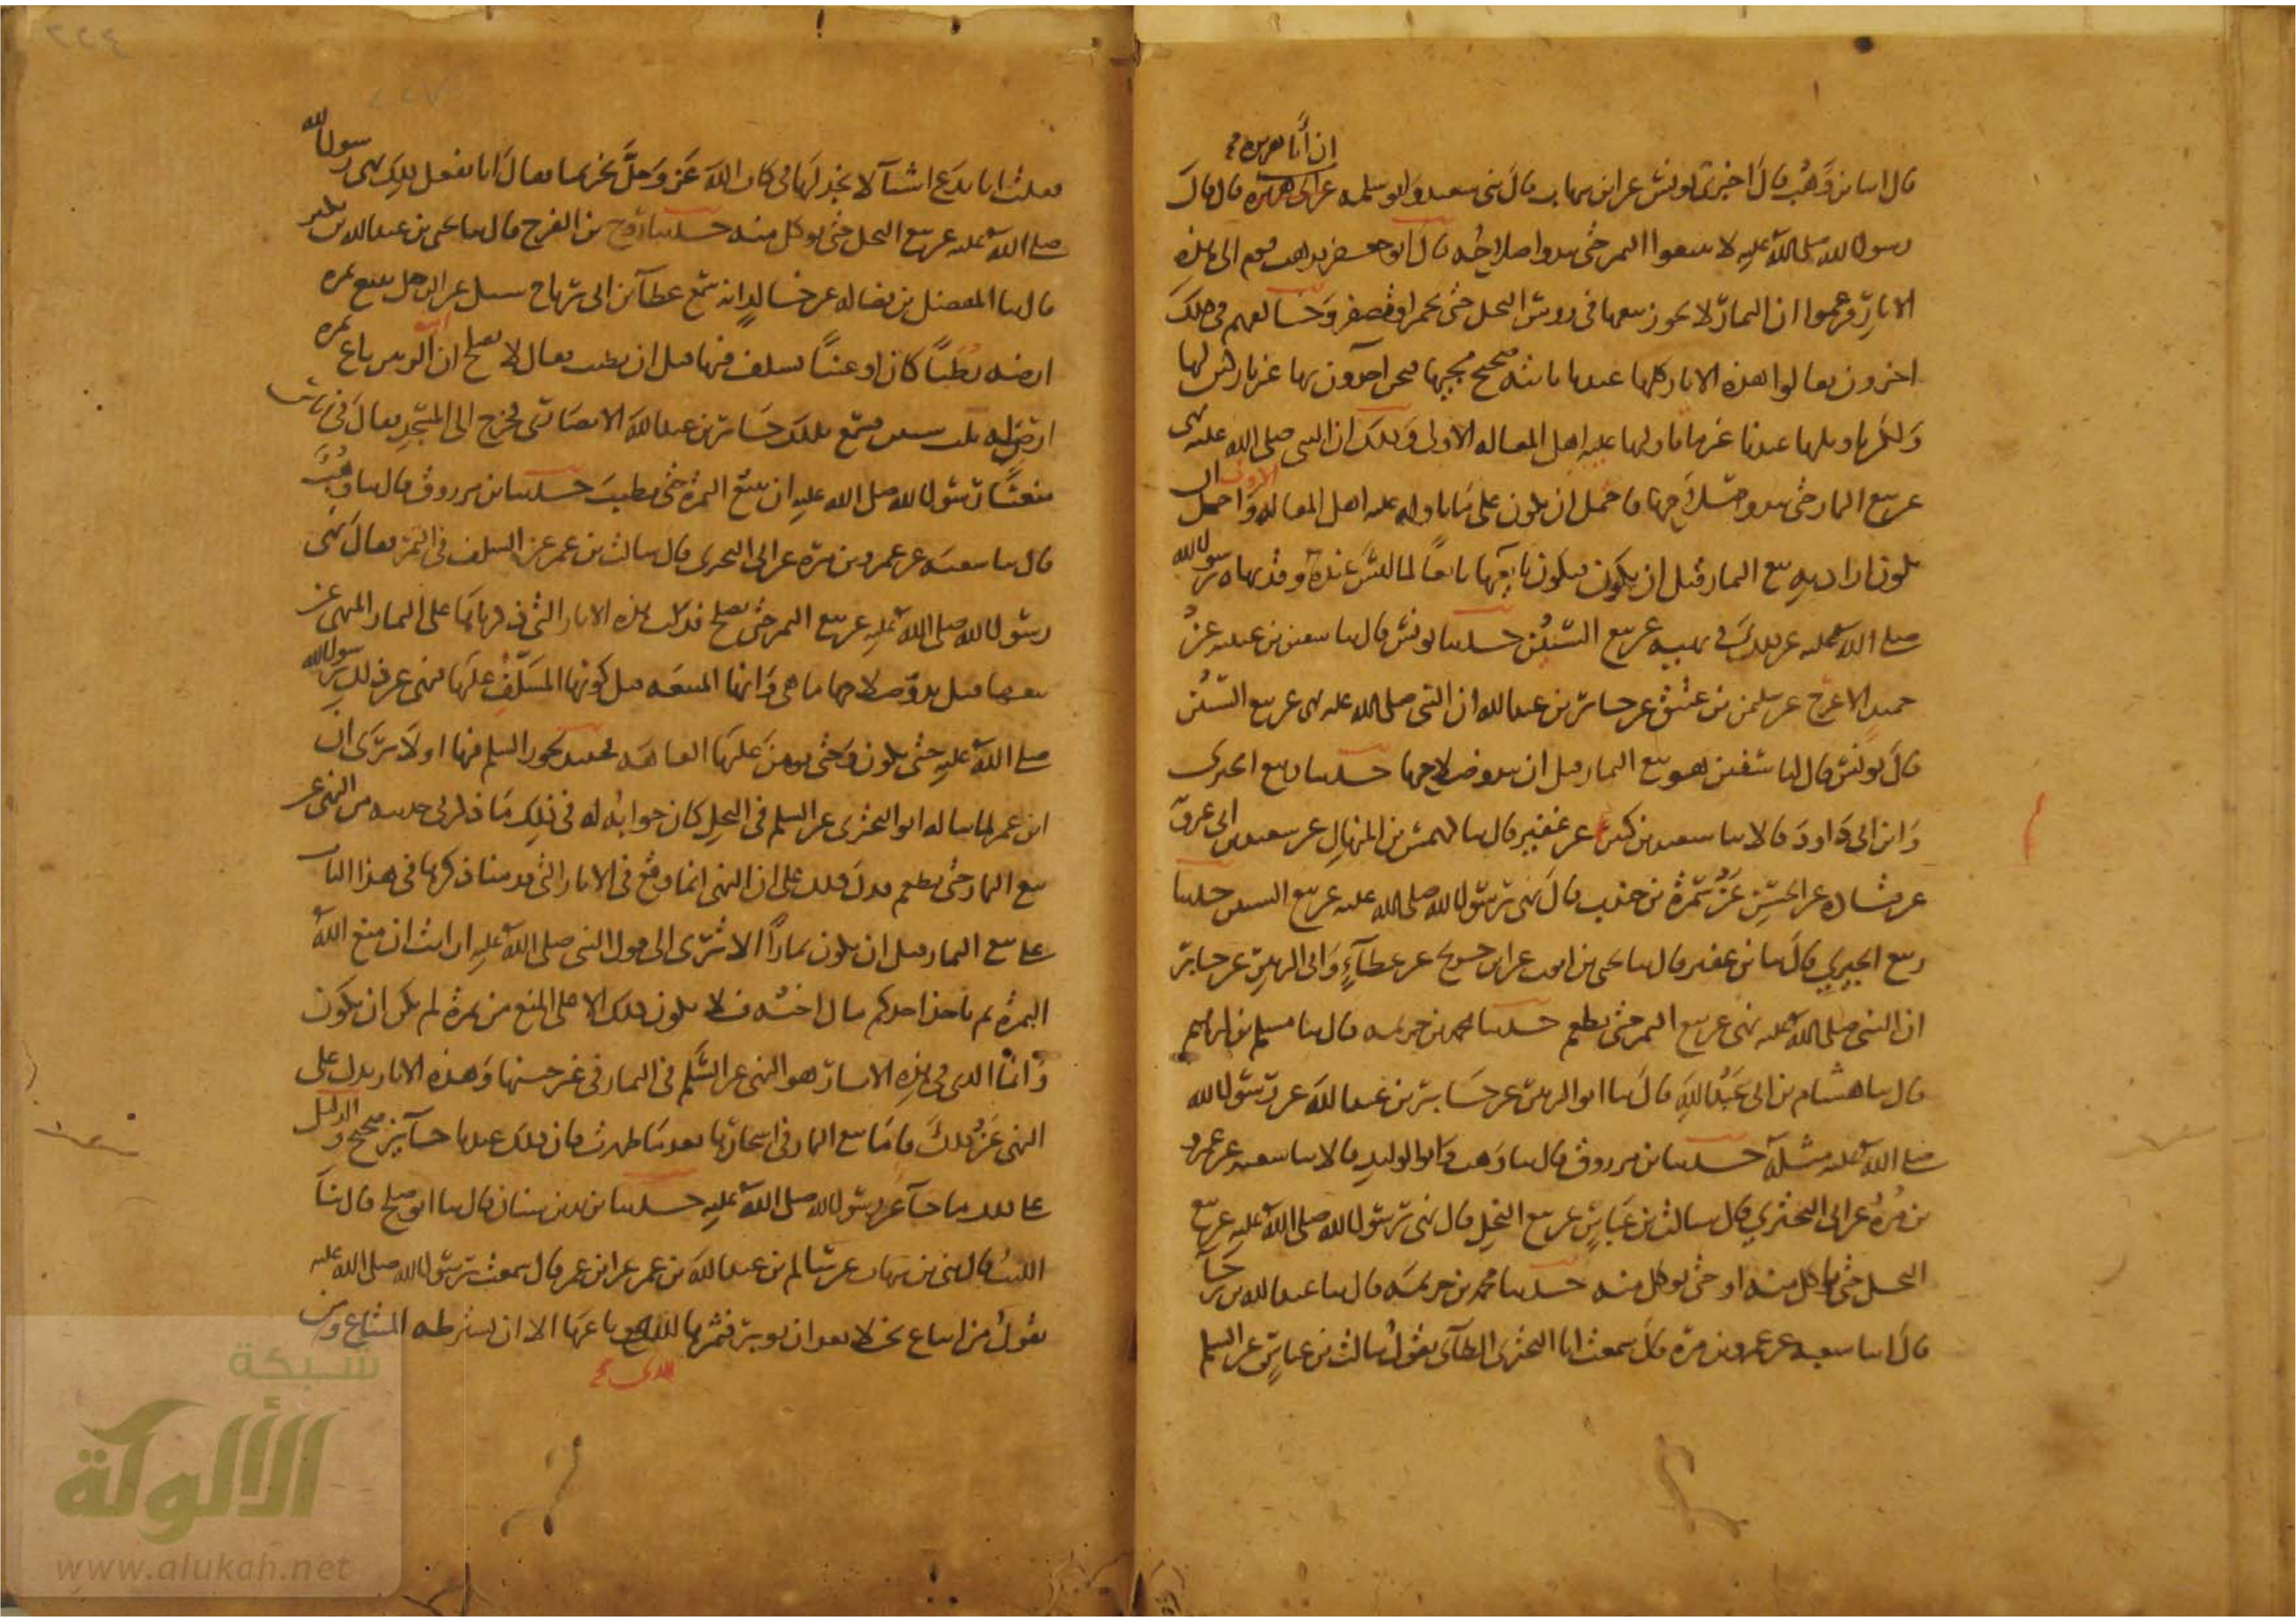 قال اسا بن وهب قال اخبرنى يونس عن ابن شهاب قال ثنى سعيد وابو سلمه عن ابى هريرة قال قال
ان أبا هريره
رسول الله صلى الله عليه لا تبيعوا الثمر حتى يبدو صلاحه قال ابو جعفر فذهب قوم الى هذه
الاثار فزعموا ان الثمار لا يجوز بيعها فى روس النخل حتى تحمر او تصفر وخالفهم فى ذلك
اخرون فقالوا هذه الاثار كلها عندنا ثابته صحيح مجيها فنحن آخذون بها غير تاركين لها
ولكن تاويلها عندنا غير ما تاولها عليه اهل المقاله الاولى وذلك ان النبى صلى الله عليه نهى
عن بيع الثمار حتى يبدو صلاحها فاحتمل ان يكون على ما تاوله عليه اهل المقاله واحتمل ان
الاولى
يكون اراد به بيع الثمار قبل ان يكون فيكون بايعها بايعا لما ليس عنده وقد نهاه رسول الله
صلى الله عليه عن ذلك فى نهيه عن بيع السنين حدثنا يونس قال ثنا سفين بن عيينه عن
حميد الاعرج عن سليمن بن عتيق عن جابر بن عبد الله ان النبى صلى الله عليه نهى عن بيع السنين
قال يونس قال لنا سفين هو بيع الثمار قبل ان يبدو صلاحها حدثنا ربيع الجيزى
وابن ابى داود قالا ثنا سعيد بن كثير عن عفير قال ثنا كهمس بن المنهال عن سعيد بن ابى عروبة
عن قتاده عن الحسن عن سمرة بن جندب قال نهى رسول الله صلى الله عليه عن بيع السنين حدثنا
ربيع الجيزي قال ثنا بن عفير قال ثنا يحيى بن ايوب عن ابن جريج عن عطآء وابى الزبير عن جابر
ان النبى صلى الله عليه نهى عن بيع الثمر حتى يطعم حدثنا محمد بن خزيمه قال ثنا مسلم بن ابراهيم
قال ثنا هشام بن ابى عبد الله قال ثنا ابو الزبير عن جابر بن عبد الله عن رسول الله
صلى الله عليه مثله حدثنا بن مرزوق قال ثنا وهب وابو الوليد قالا ثنا شعبه عن عمرو
بن مرة عن ابى البخترى قال سالت بن عباس عن بيع النخل قال نهى رسول الله صلى الله عليه عن بيع
النخل حتى ياكل منه او حتى يوكل منه حدثنا محمد بن خزيمه قال ثنا عبد الله بن رجآ
قال انا شعبه عن عمرو بن مرة قال سمعت ابا البخترى الطآى يقول سالت بن عباس عن السلم
فقلت انا ندع اشيآ لا نجد لها فى كتاب الله عز وجل تحريما فقال انا نفعل ذلك نهى رسول الله
صلى الله عليه عن بيع النخل حتى يوكل منه حدثنا روح بن الفرج قال ثنا يحيى بن عبد الله بن بكير
قال ثنا المفضل بن فضاله عن خالد انه سمع عطآ بن ابى رباح سيل عن الرجل يبيع ثمره
ارضه رطبا كان او عنبا يسلف فيها قبل ان يطيب فقال لا يصلح ان ابن الزبير باع ثمره
ارض له ثلث سنين فسمع بذلك جابر بن عبد الله الانصارى فخرج الى المسجد فقال فى ناس
منعنا رسول الله صلى الله عليه ان نبيع الثمرة حتى تطيب حدثنا بن مرزوق قال ثنا وهب
قال ثنا شعبه عن عمرو بن مرة عن ابى البخترى قال سالت بن عمر عن السلف فى الثمر فقال نهى
رسول الله صلى الله عليه عن بيع الثمر حتى يصلح فدلت هذه الاثار التى ذكرناها على الثمار المنهى عن
بيعها قبل بدو صلاحها ما هى وانها المبيعه قبل كونها المسلف عليها فنهى عن ذلك رسول الله
صلى الله عليه حتى يكون وحتى يومن عليها العاهه فحينيذ يجوز السلم فيها اولا ترى ان
ابن عمر لما ساله ابو البخترى عن السلم فى النخل كان جوابه له فى ذلك ما ذكر فى حديثه من النهى عن
بيع الثمار حتى تطعم فدل ذلك على ان النهى انما وقع فى الاثار التى قدمنا ذكرها فى هذا الباب
على بيع الثمار قبل ان يكون ثمارا الا ترى الى قول النبى صلى الله عليه ارايت ان منع الله
الثمرة بم ياخذ احدكم مال اخيه فلا يكون ذلك الا على المنع من ثمرة لم يكن ان يكون
وانما الذى فى هذه الاثار هو النهى عن السلم فى الثمار فى غير حينها وهذه الاثار يدل على
النهى عن ذلك فاما بيع الثمار فى اشجارها بعد ما ظهرت فان ذلك عندنا جايز صحيح والدليل
على ذلك ما جآ عن رسول الله صلى الله عليه حدثنا يزيد بن سنان قال ثنا ابو صلح قال ثنا
الليث قال ثنى بن شهاب عن سالم بن عبد الله بن عمر عن ابن عمر قال سمعت رسول الله صلى الله عليه
يقول من ابتاع نخلا بعد ان يوبر فثمرها للذى باعها الا ان يشترطه المبتاع ومن
للذى
شبكة
الألوكة
www.alukah.net